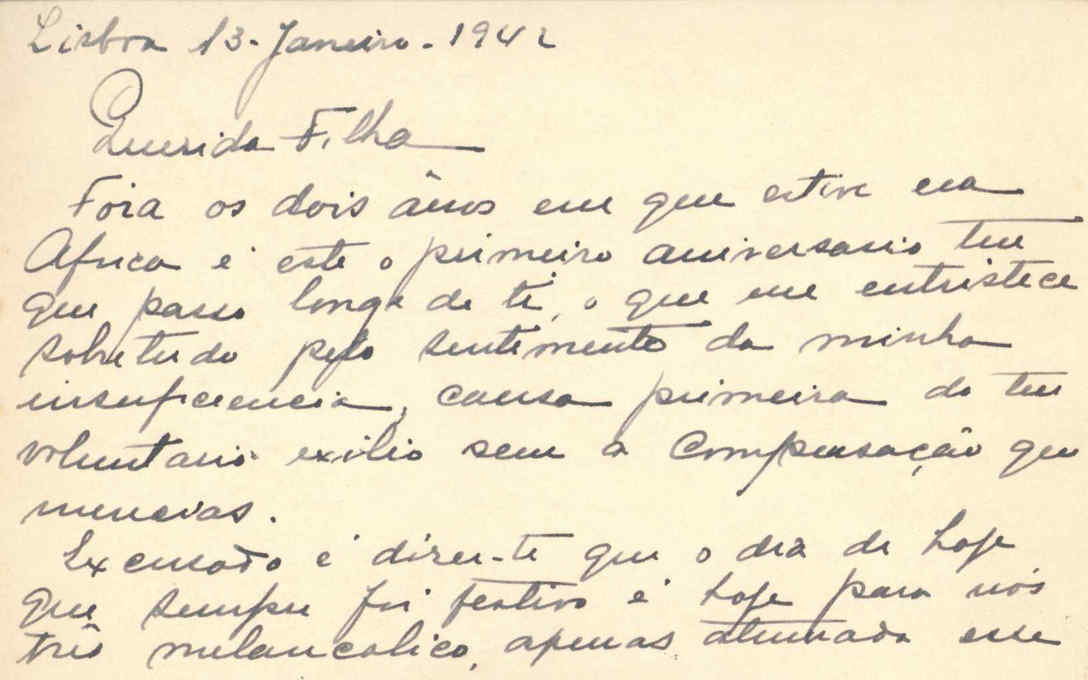 Lisboa 13-Janeiro-1942
Querida Filha
Fóra os dois ânos em que estive na
Africa é este o primeiro aniversario teu
que passo longe de ti, o que me entristece
sobretudo pelo sentimento da minha
insuficiencia, causa primeira do teu
voluntario exilio sem a compensação que
merecias.
Excusado é dizer-te que o dia de hoje
que sempre foi festivo é hoje para nós
três melancolico, apenas atenuada esse